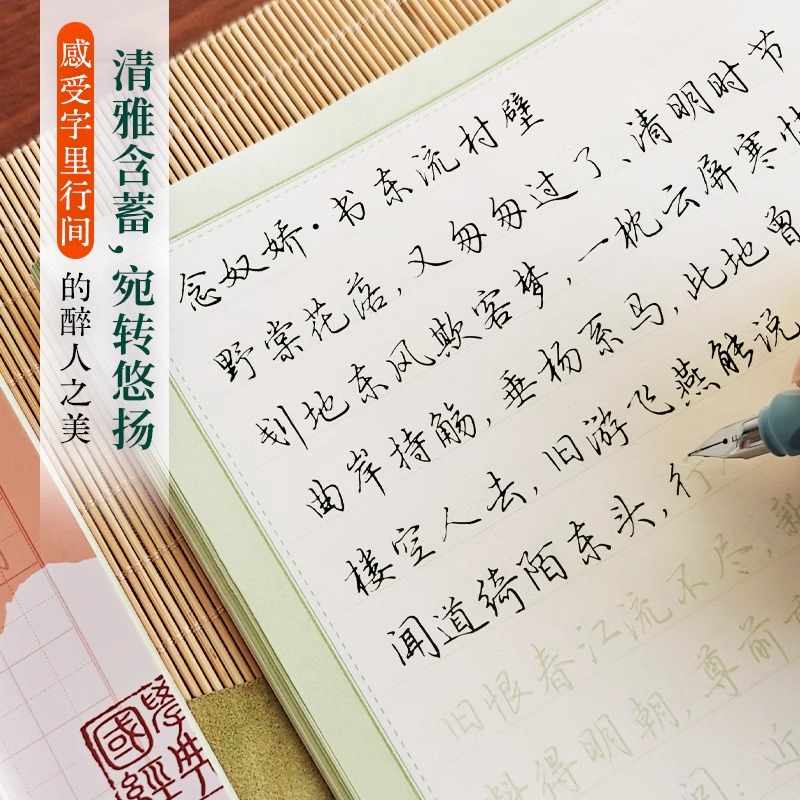 清雅含蓄,宛转悠扬
感受字里行间的醉人之美
念奴娇·书东流村壁
野棠花落,又匆匆过了、清明时节
刬地东风欺客梦,一枕云屏寒怯
曲岸持觞,垂杨系马,此地曾
楼空人去,旧游飞燕能说
闻道绮陌东头,行
旧恨春江流不尽,新
料得明朝,尊前
问:近
國學經典